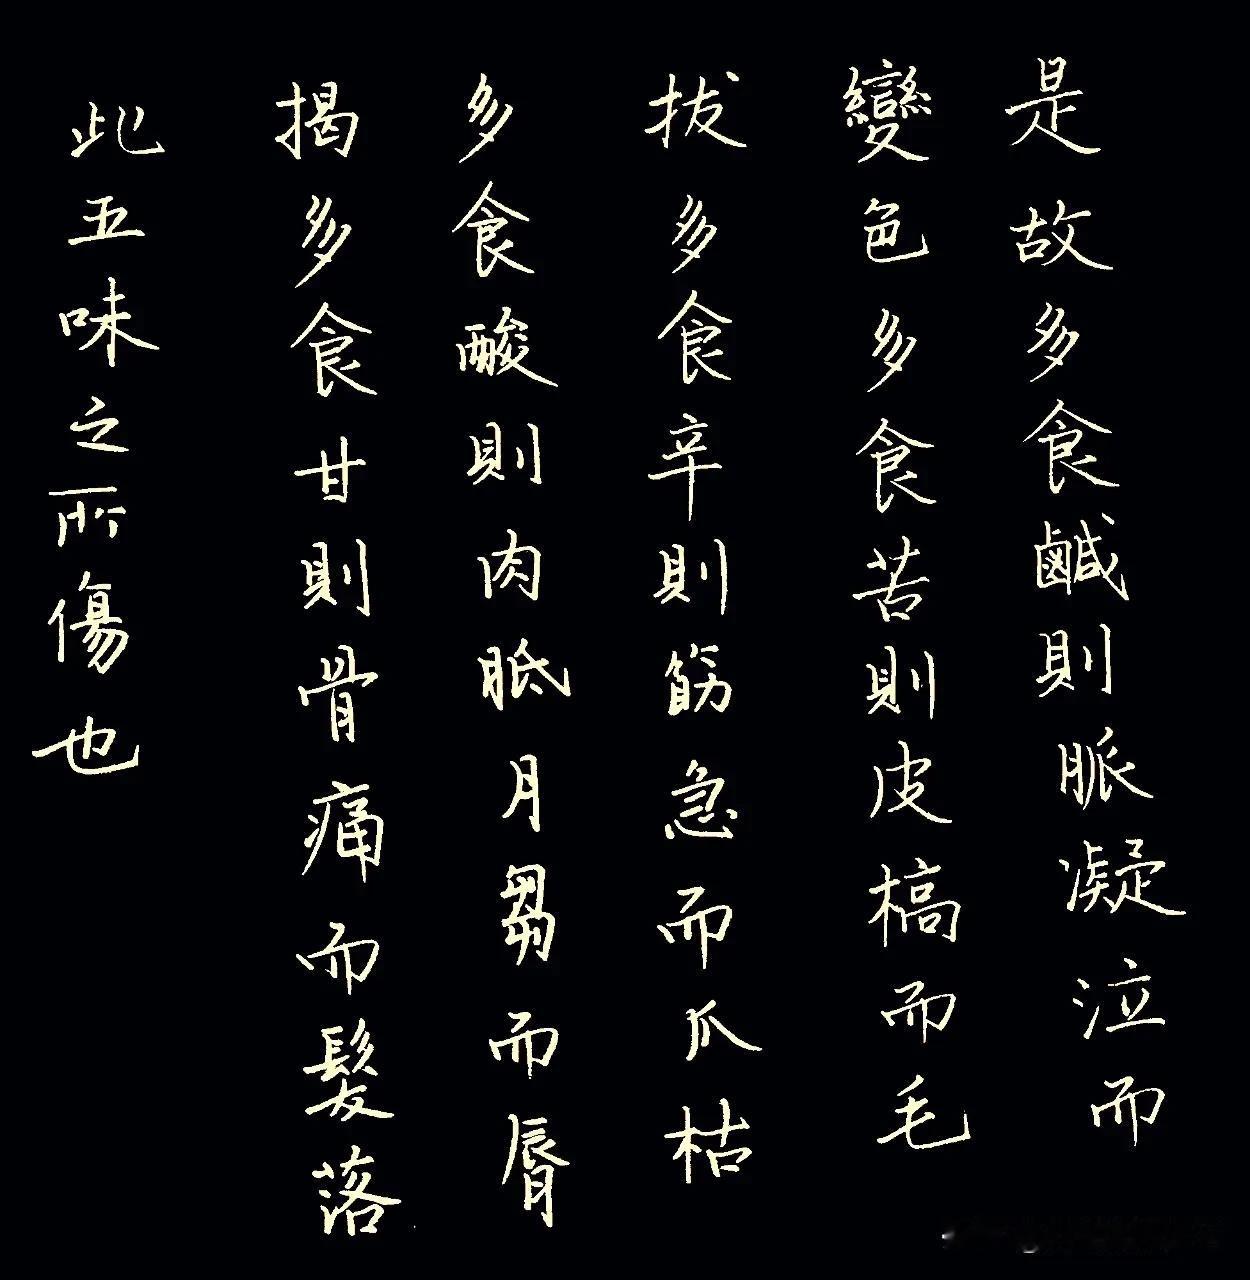 是故多食鹹則脈凝泣而
變色多食苦則皮槁而毛
拔多食辛則筋急而爪枯
多食酸則肉胝月芻而脣
揭多食甘則骨痛而髮落
此五味之所傷也